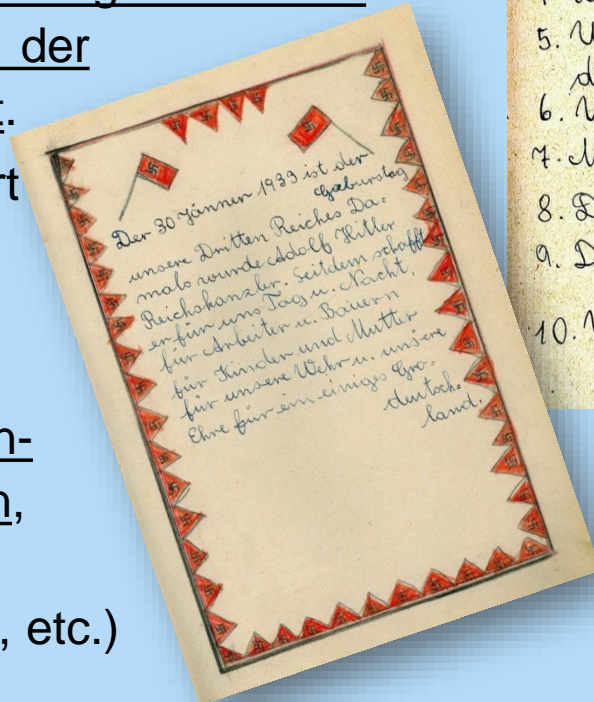 der
.
rt
n-
n,
, etc.)
Der 30 Jänner 1933 ist der
Geburstag
unsere Dritten Reiches Da-
mals wurde Adolf Hitler
Reichskanzler. Seitdem schafft
er für uns Tag u. Nacht,
für Arbeiter u. Bauern
für Kinder und Mütter
für unsere Wehr u. unsere
Ehre für ein einiges Gro-
deutsch-
land.
5.
6.
7.
8. D
9. D
10.